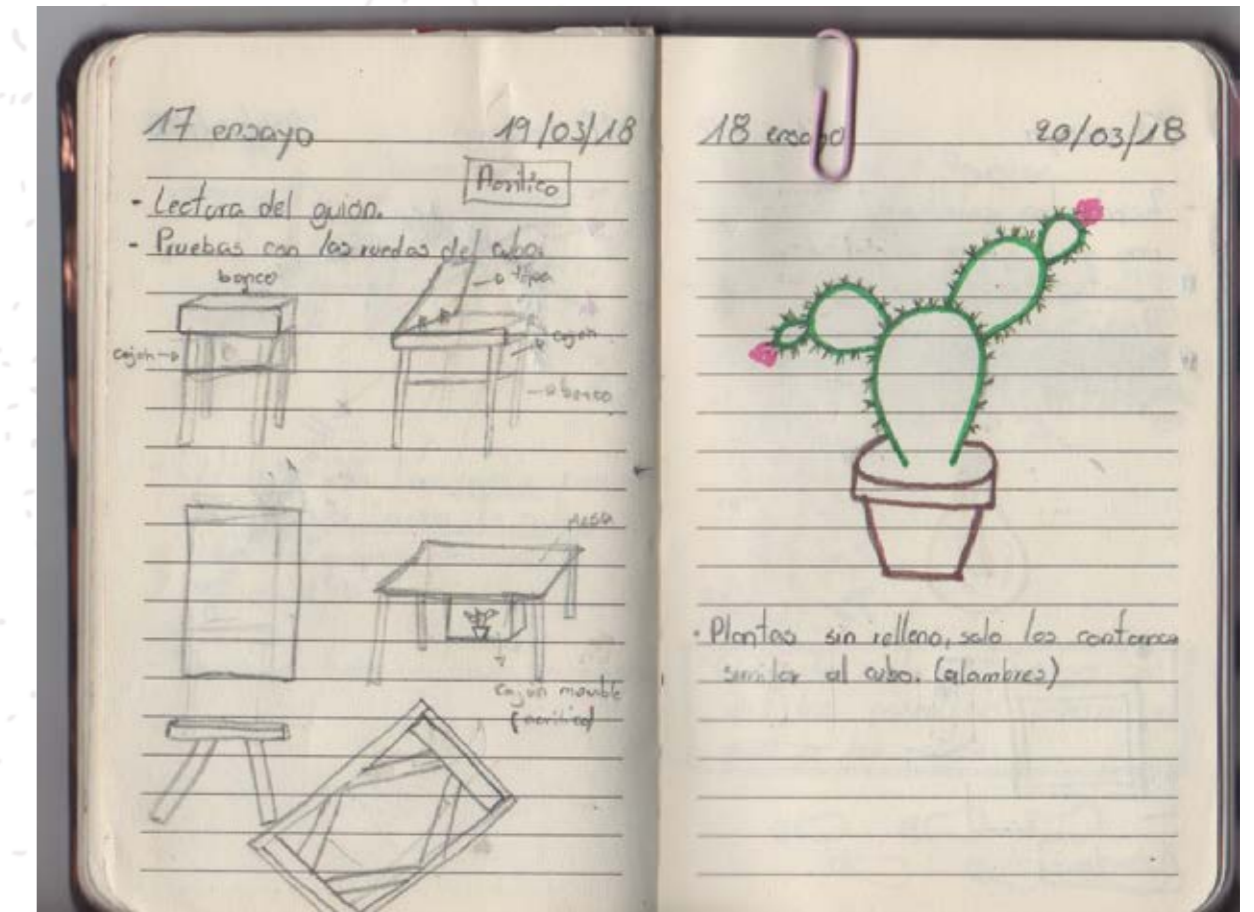 17 ensayo 19/03/18
Acrílico
- Lectura del guión.
- Pruebas con las ruedas del cubo.
banco
tapa
cajón
cajón
banco
Mesa
Cajón movible
(acrílico)
18 ensayo 20/03/18
- Plantas sin relleno, solo los contornos
similar al cubo. (alambres)